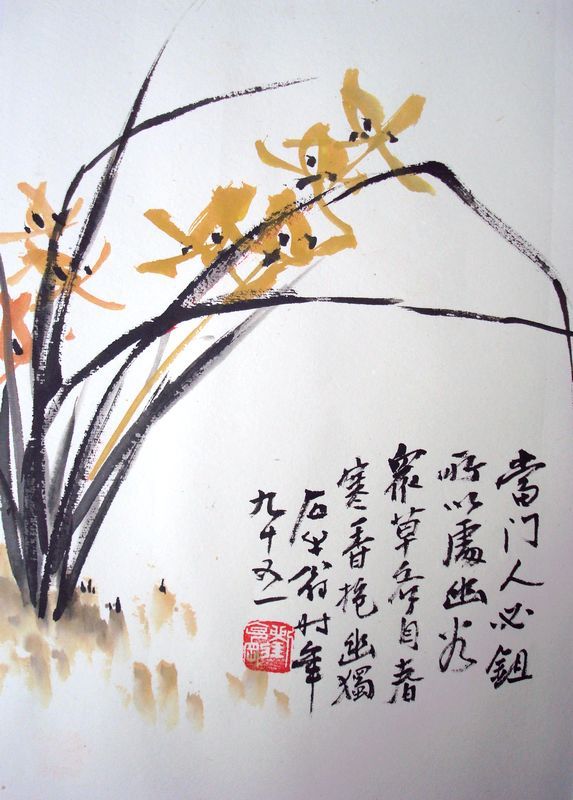 當门人必鉏
所以處幽谷
眾草各自春
寒香抱幽獨
石翁时年
九十又一